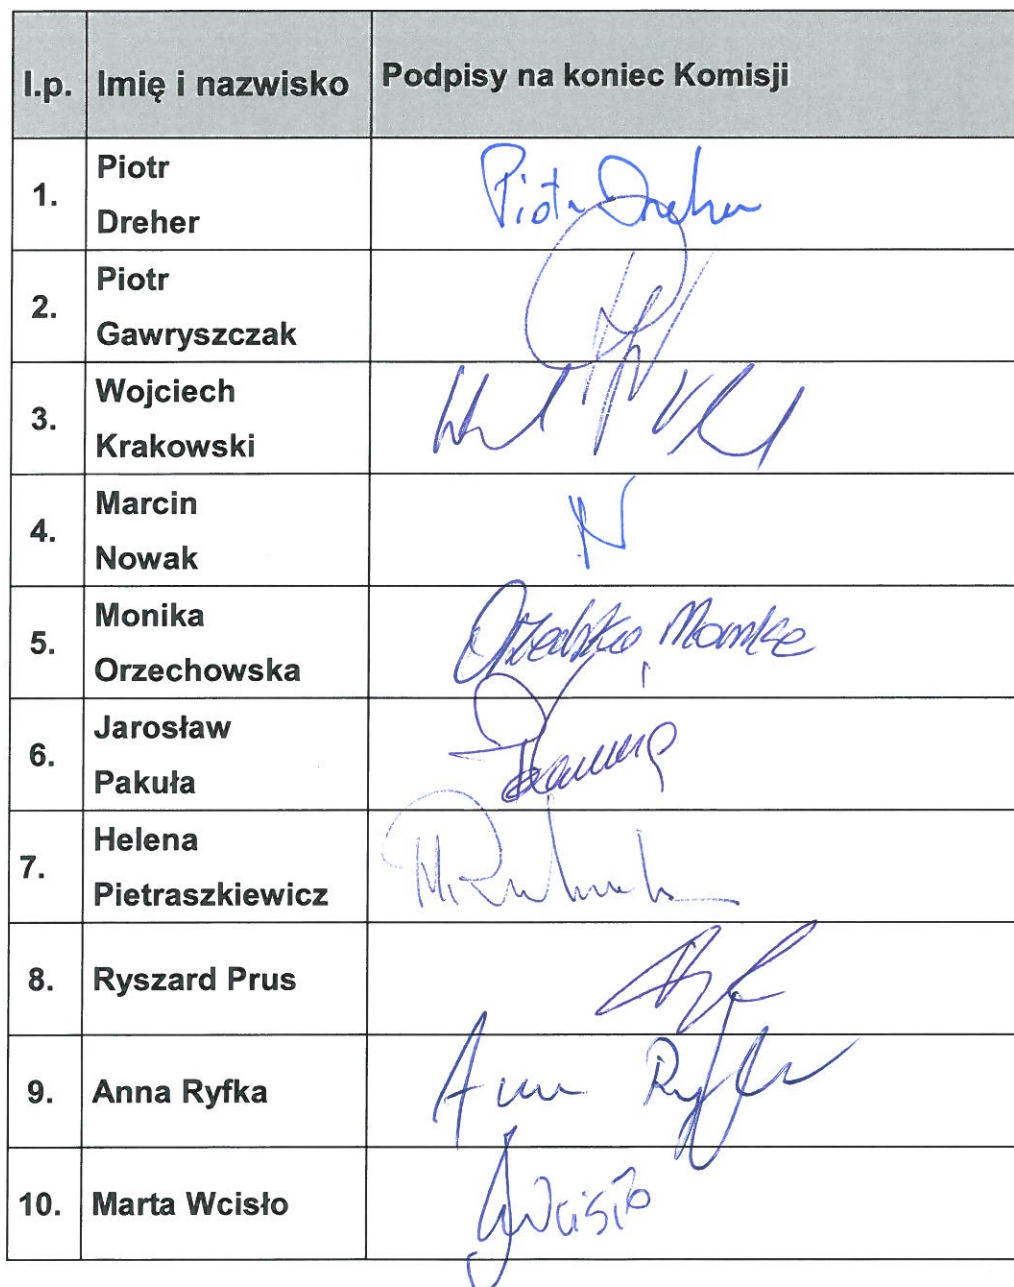 l.p. Imię i nazwisko Podpisy na koniec Komisji
1. Piotr
Dreher
Piotr Dreher
2. Piotr
Gawryszczak
3. Wojciech
Krakowski
4. Marcin
Nowak
N
5. Monika
Orzechowska
6. Jarosław
Pakuła
7. Helena
Pietraszkiewicz
8. Ryszard Prus
9. Anna Ryfka
Anna Ryfka
10. Marta Wcisło
Wcisło